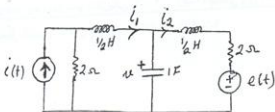 i₁ i₂
½H ½H
i(t) 2Ω v + 1F 2Ω
+ e(t)
-